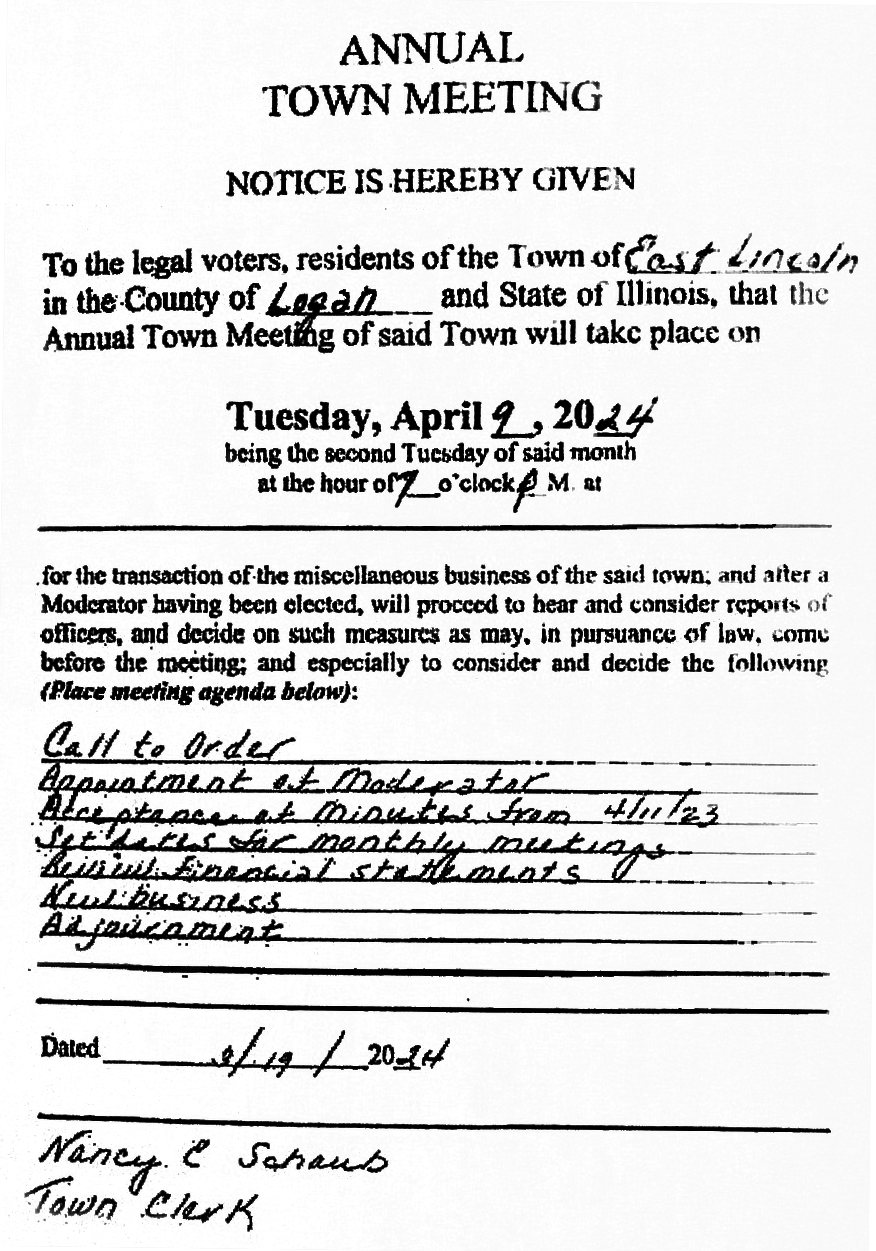 ANNUAL
TOWN MEETING
NOTICE IS HEREBY GIVEN
To the legal voters, residents of the Town of East Lincoln
in the County of Logan and State of Illinois, that the
Annual Town Meeting of said Town will take place on
Tuesday, April 9, 2024
being the second Tuesday of said month
at the hour of 7 o'clock P M. at
for the transaction of the miscellaneous business of the said town; and after a
Moderator having been elected, will proceed to hear and consider reports of
officers, and decide on such measures as may, in pursuance of law, come
before the meeting; and especially to consider and decide the following
(Place meeting agenda below):
Call to Order
Appointment of Moderator
Acceptance of Minutes from 4/11/23
Set dates for monthly meetings
Review financial statements
New business
Adjournment
Dated /19/ 2024
Nancy C Schaub
Town Clerk